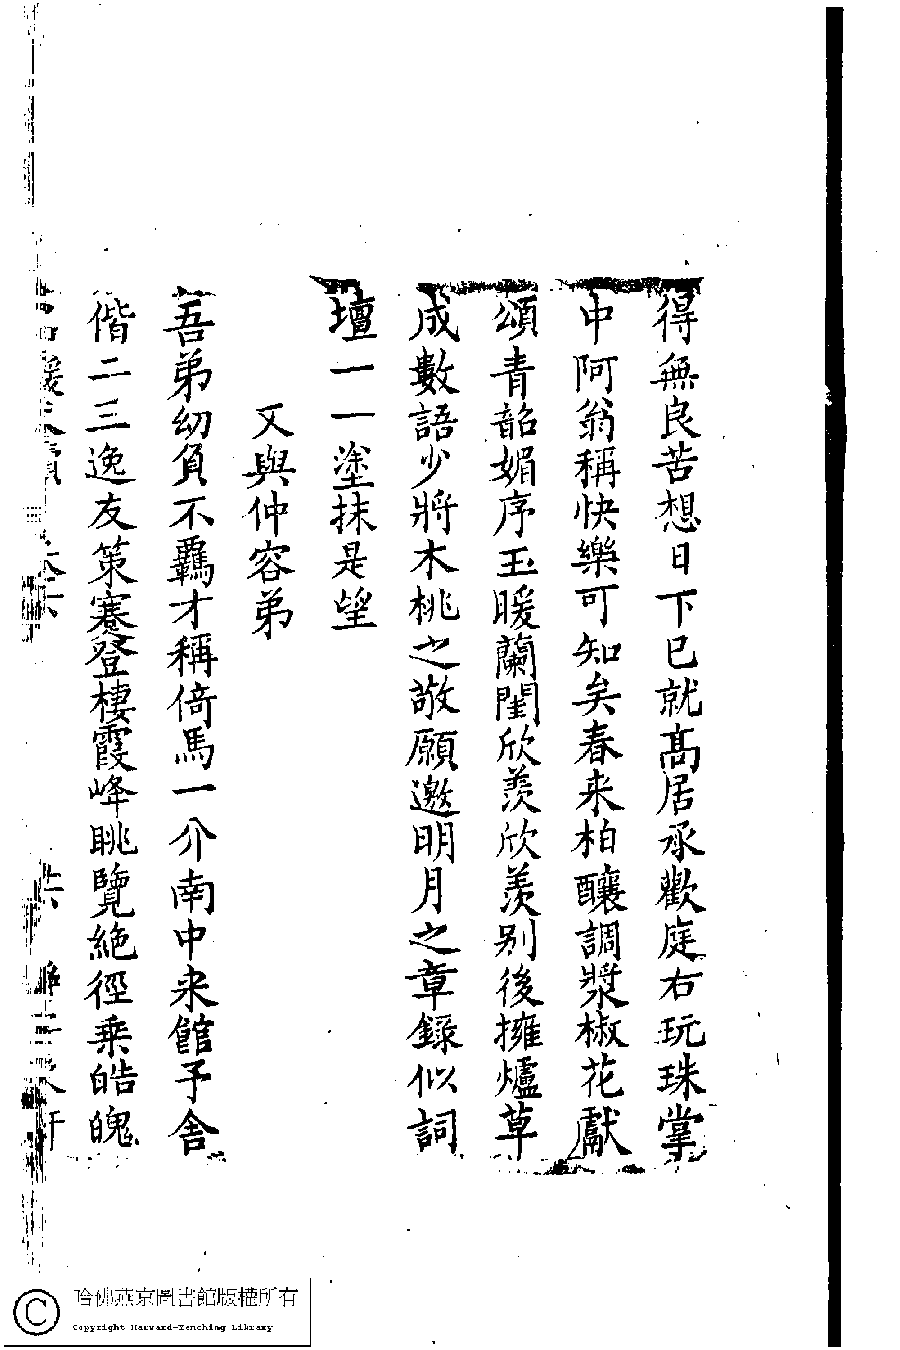 得無良苦想日下已就髙居承歡庭右玩珠掌
中阿翁稱快樂可知矣春来柏釀調漿椒花獻
頌青韶媚序玉暖蘭閨欣羨欣羨别後擁爐草
成數語少將木桃之敬願邀明月之章錄似詞
壇一一塗抹是望
又與仲容弟
吾弟幼負不羈才稱倚馬一介南中来館予舍
偕二三逸友策蹇登棲霞峰眺覽絶徑乗皓魄
哈佛燕京圖書館版權所有
Copyright Harvard-Yenching Library